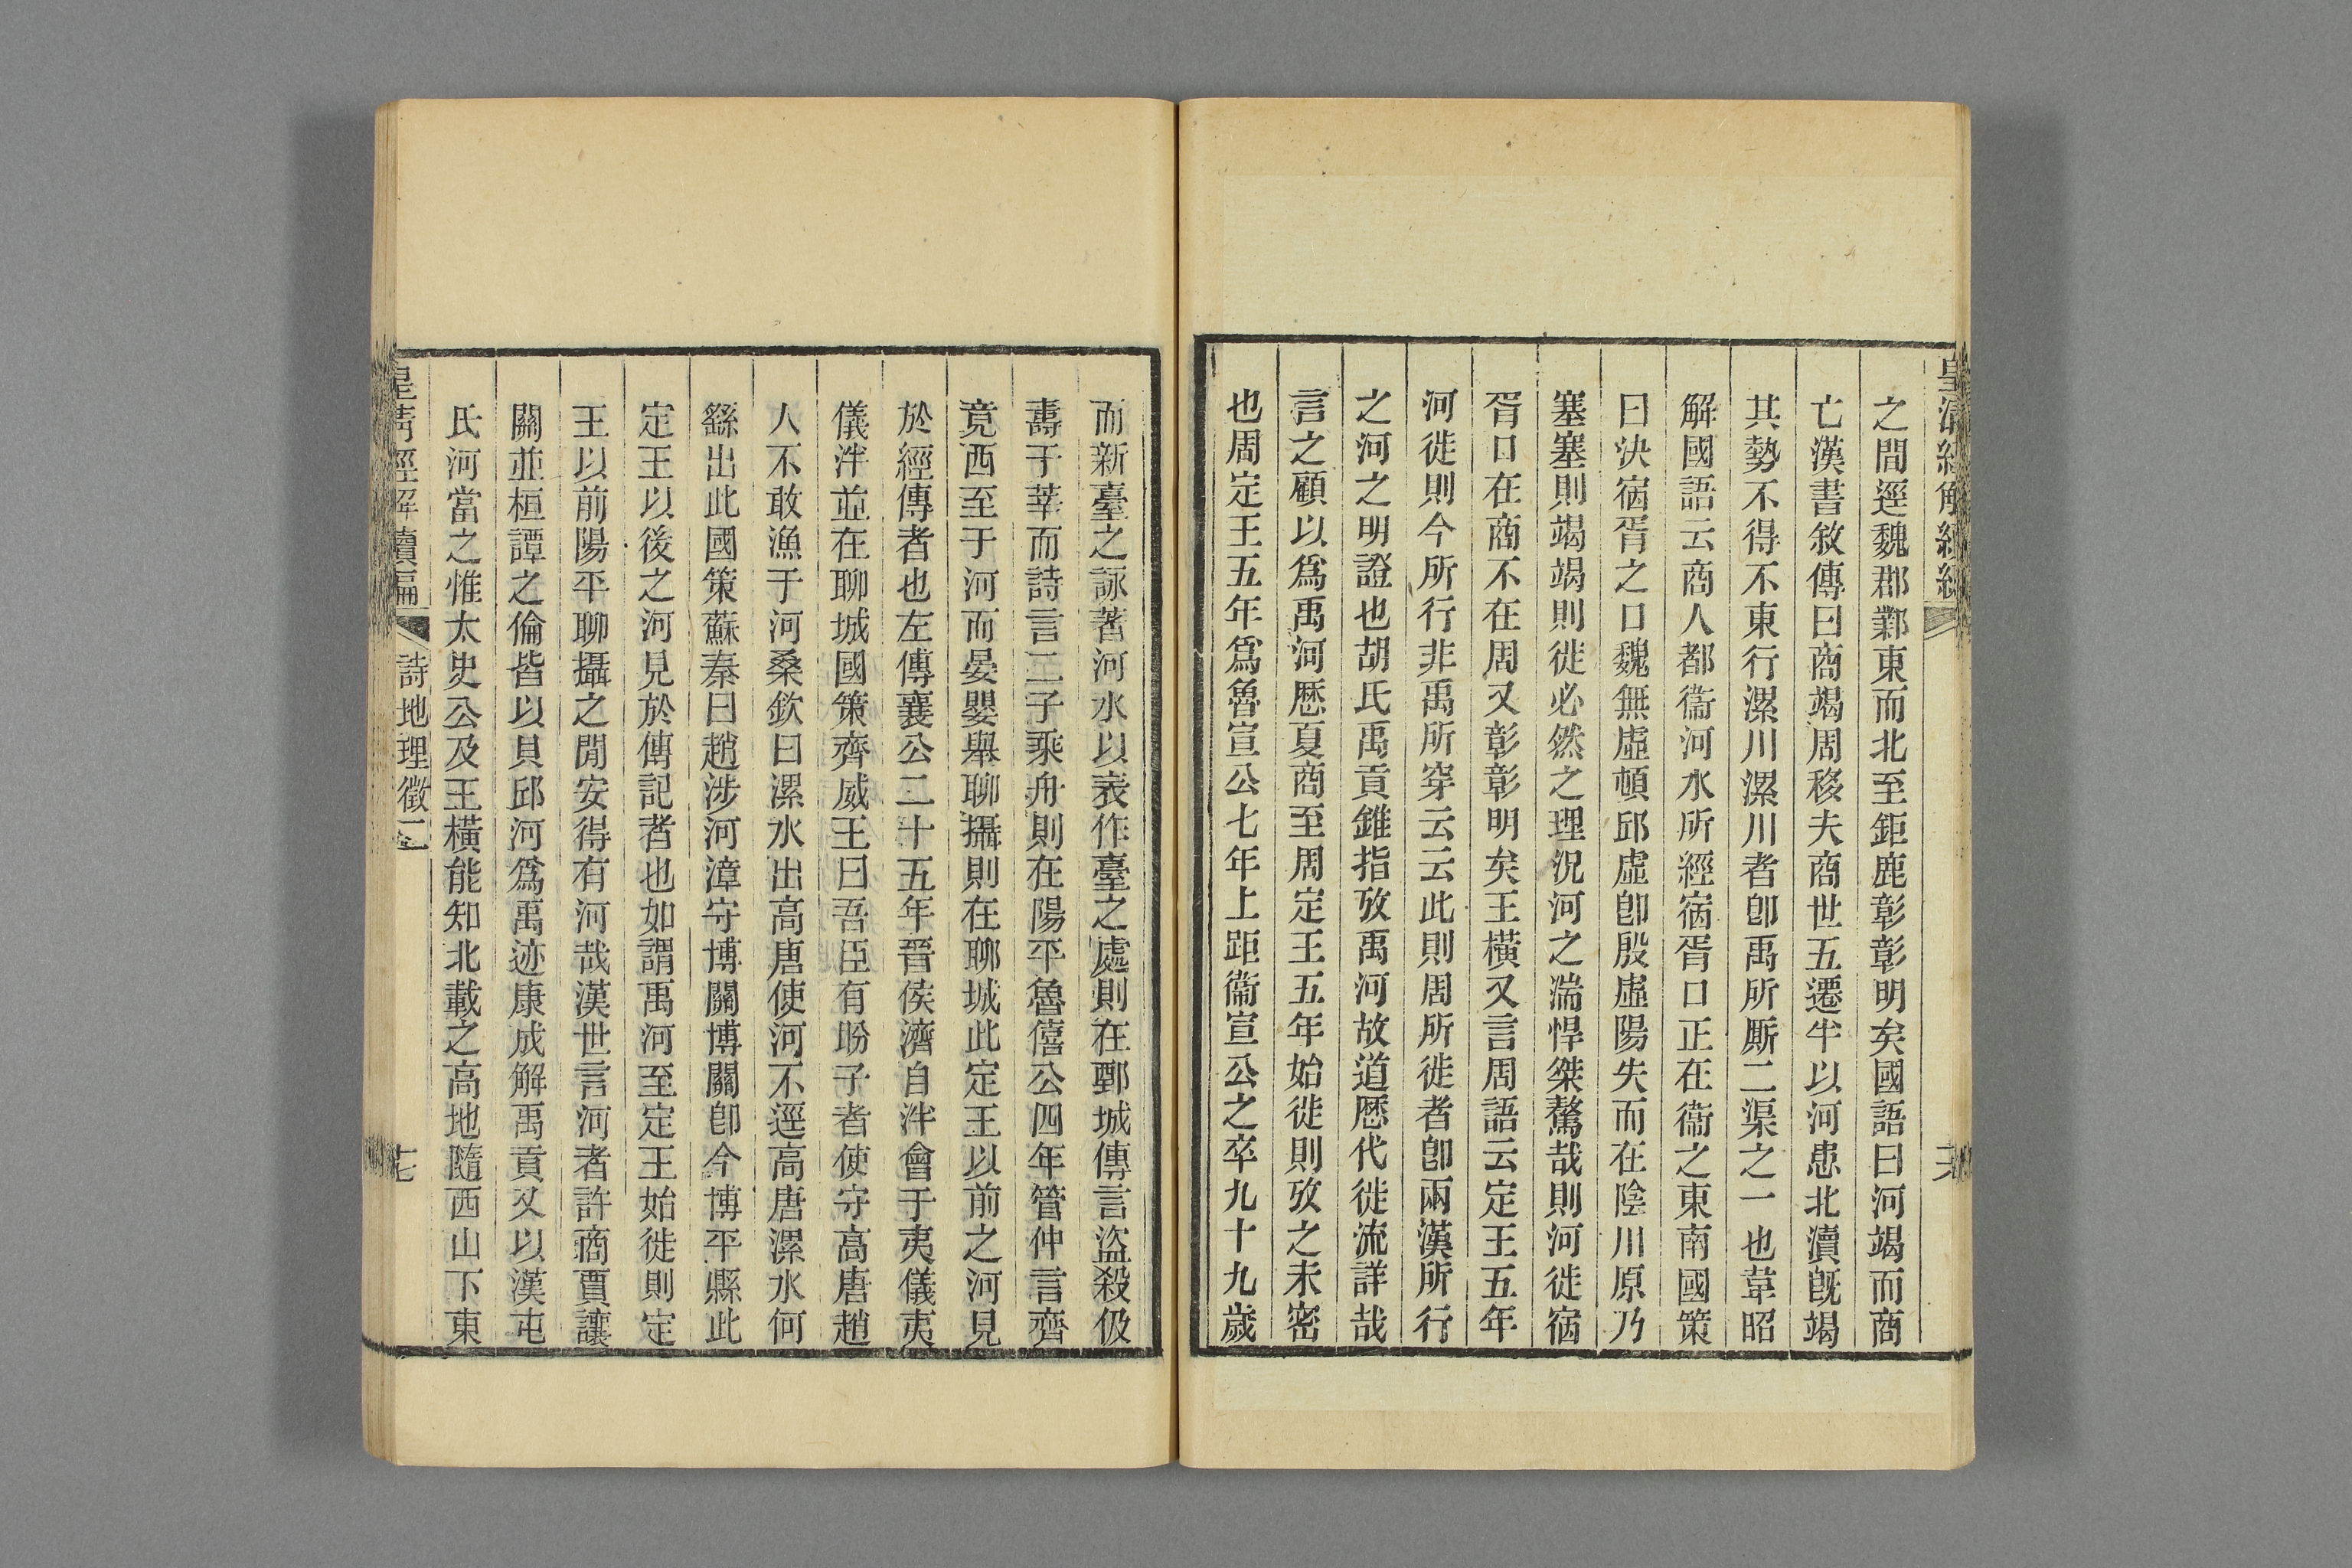 皇清經解續編
之間逕魏郡鄴東而北至鉅鹿彰彰明矣國語曰河竭而商
亡漢書敘傳曰商竭周移夫商世五遷半以河患北瀆旣竭
其勢不得不東行漯川漯川者卽禹所厮二渠之一也韋昭
解國語云商人都衞河水所經宿胥口正在衞之東南國策
曰決宿胥之口魏無虛頓邱虛卽殷虛陽失而在陰川原乃
塞塞則竭竭則徙必然之理況河之湍悍桀驁哉則河徙宿
胥口在商不在周又彰彰明矣王橫又言周語云定王五年
河徙則今所行非禹所穿云云此則周所徙者卽兩漢所行
之河之明證也胡氏禹貢錐指攷禹河故道歷代徙流詳哉
言之顧以爲禹河歷夏商至周定王五年始徙則攷之未密
也周定王五年爲魯宣公七年上距衞宣公之卒九十九歲
而新臺之詠著河水以表作臺之處則在鄄城傳言盜殺伋
壽于莘而詩言二子乘舟則在陽平魯僖公四年管仲言齊
竟西至于河而晏嬰舉聊攝則在聊城此定王以前之河見
於經傳者也左傳襄公二十五年晉侯濟自泮會于夷儀夷
儀泮並在聊城國策齊威王曰吾臣有盼子者使守高唐趙
人不敢漁于河桑欽曰漯水出高唐使河不逕高唐漯水何
繇出此國策蘇秦曰趙涉河漳守博關博關卽今博平縣此
定王以後之河見於傳記者也如謂禹河至定王始徙則定
王以前陽平聊攝之閒安得有河哉漢世言河者許商賈讓
關並桓譚之倫皆以貝邱河爲禹迹康成解禹貢又以漢屯
氏河當之惟太史公及王橫能知北載之高地隨西山下東
皇清經解續編
詩地理徵二
十七